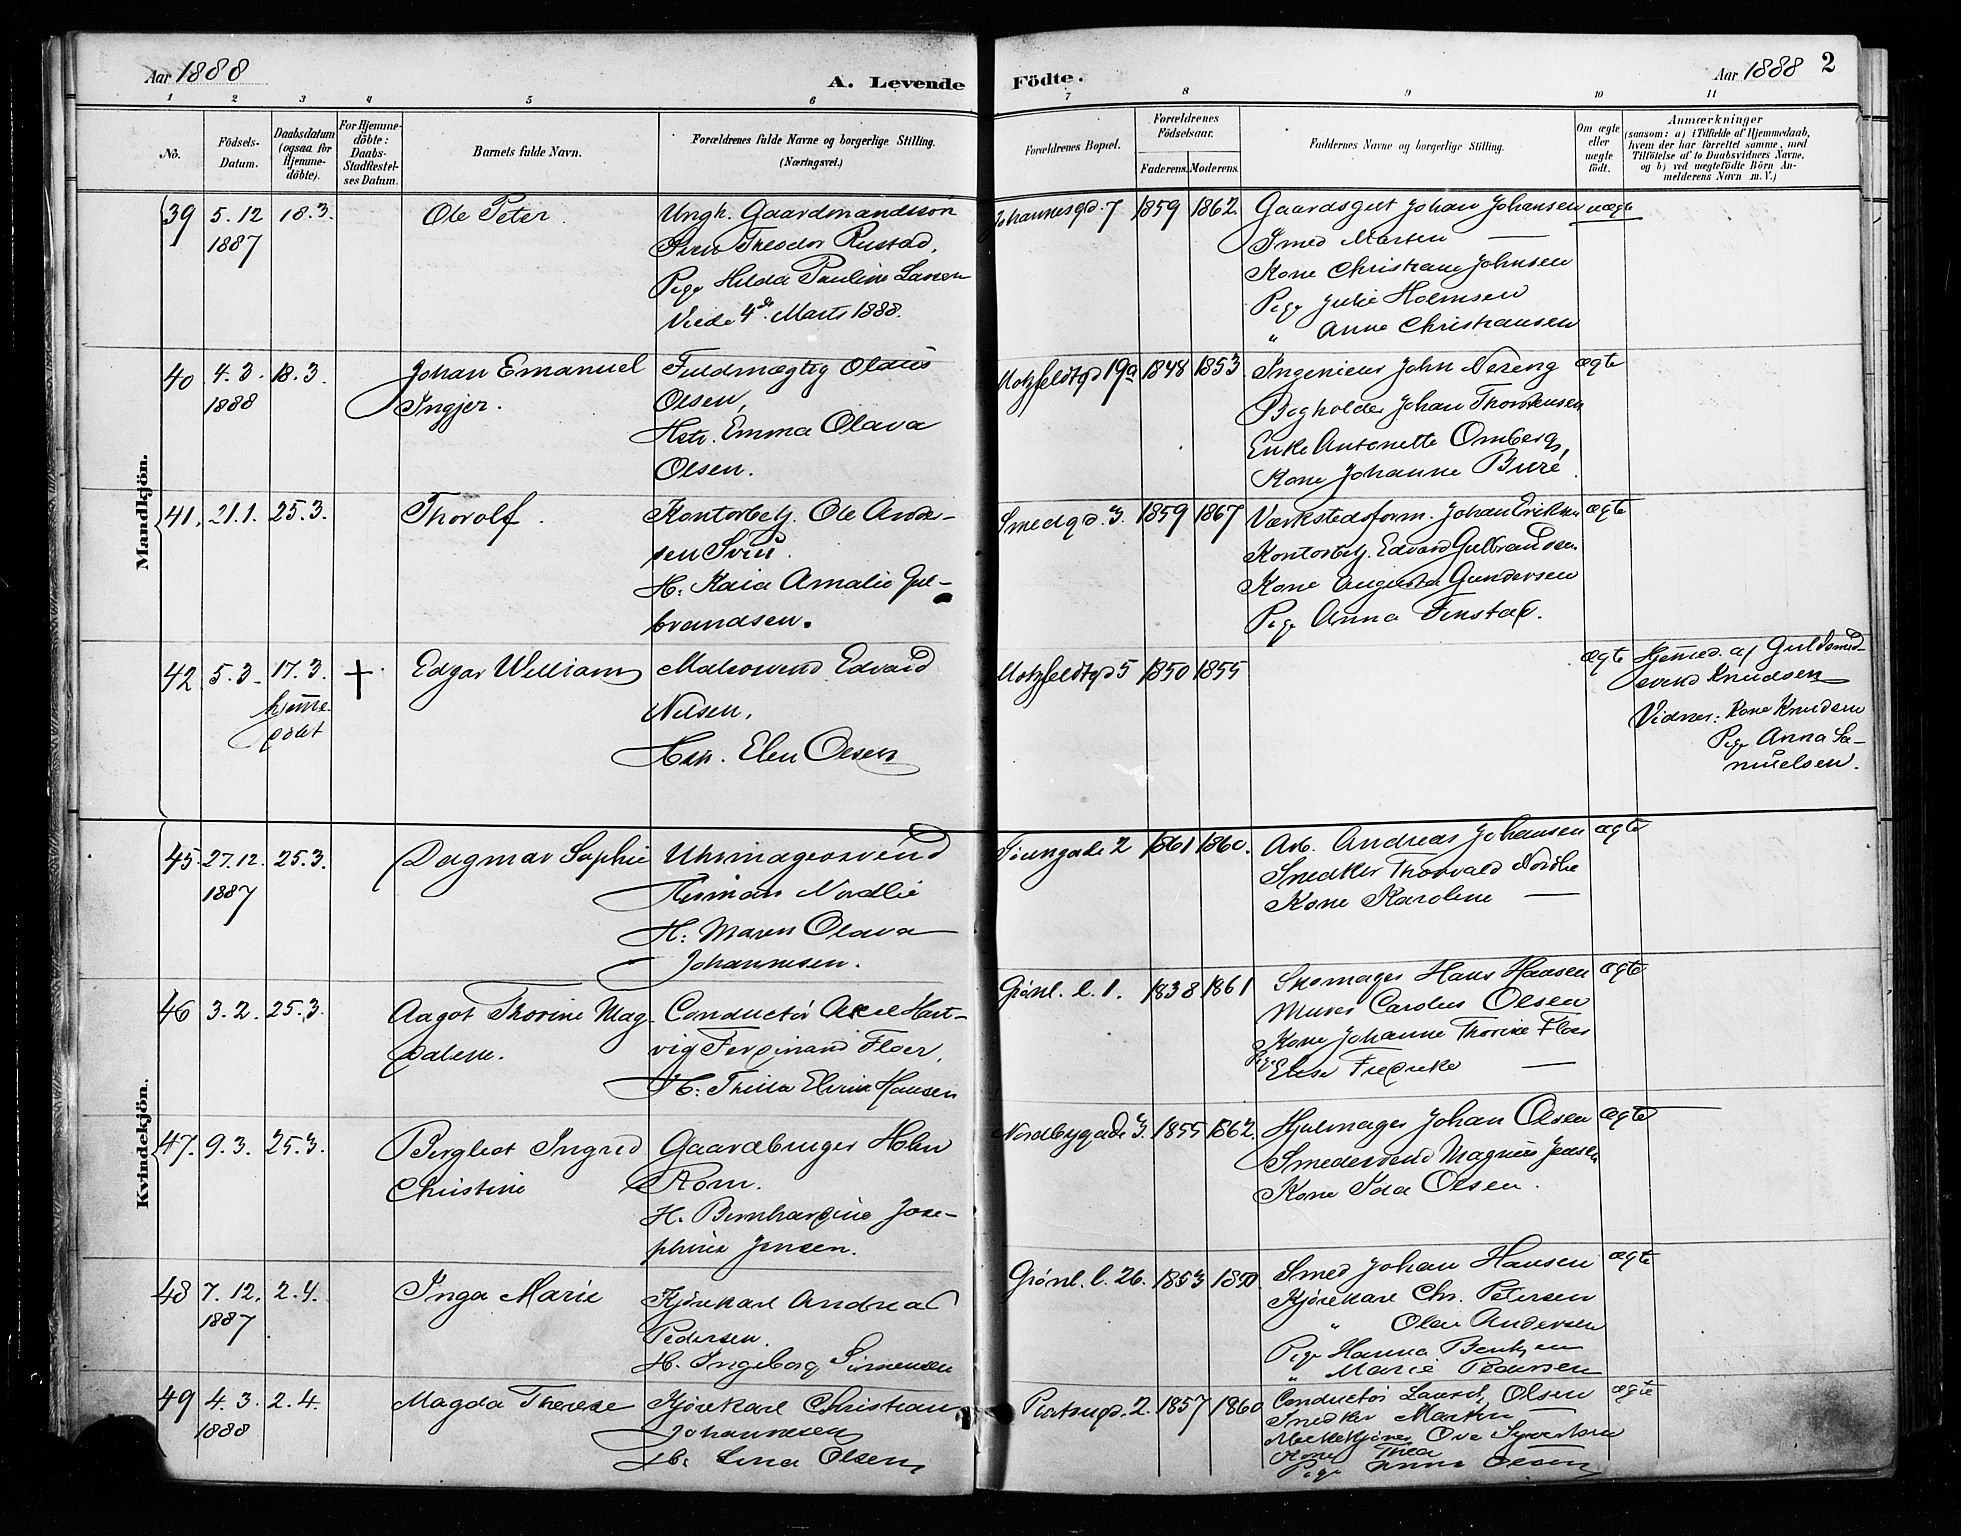 Aar 1888
A. Levende Födte.
Aar 1888 2
1 2 3 4 5 6 7 8 9 10 11
No.
Födsels-Datum.
Daabsdatum (ogsaa for Hjemmedöbte).
For Hjemmedöbte: Daabs-Stadfæstelses Datum.
Barnets fulde Navn.
Forældrenes fulde Navne og borgerlige Stilling. (Næringsvei.)
Forældrenes Bopæl.
Forældrenes Födselsaar.
Faderens. Moderens.
Faddernes Navne og borgerlige Stilling.
Om ægte eller uægte födt.
Anmærkninger
(saasom: a) i Tilfælde af Hjemmedaab,
hvem der har forrettet samme, med
Tilföielse af to Daabsvidners Navne,
og b) ved uægtefödte Börn An-
melderens Navn m. V.)
Mandkjön.
39 5.12 1887 18.3. Ole Peter
Ungk. Gaardmandssön
Theodor Rustad.
Pige Hilda Pauline Larsen
Viede 4de Marts 1888.
Johannesgd. 7 1859 1862
Gaardsgut Johan Johansen uægte
Smed Martin —
Kone Christiane Johnsen
Pige Julie Holmsen
" Anne Christiansen
40 4.3. 1888 18.3. Johan Emanuel
Ingjer.
Fuldmægtig Olaus
Olsen,
Hstr. Emma Olava
Olsen.
Motzfeldtgd 19a 1848 1853
Ingeniör John Nereng ægte
Bogholder Johan Thorstensen
Enke Antonette Omberg,
Kone Johanne Buré.
41. 21.1. 25.3. Thorolf.
Kontorbetj. Ole Ander-
sen
H. Kaia Amalie Gul-
brandsen.
Smedgd. 3. 1859 1867
Værkstedsform. Johan Eriksen ægte
Kontorbetj. Edvard Gulbrandsen
Kone Augusta Gundersen
Pige Anna Finstad.
42 5.3. 17.3. hjemmedöbt † Edgar William
Malersvend Edvard
Nilsen,
Hstr. Elen Olsen
Motzfeldtgd 5 1850 1855
ægte Hjemmed. af Guldsmed-
svend Knudsen
Vidner: Kone Knudsen
Pige Anna Sa-
muelsen.
Kvindekjön.
45 27.12. 1887 25.3. Dagmar Sophie
Uhrmagersvend
Herman Nordlie
H: Maren Olava
Johannesen.
Töiengade 2 1861 1860.
Arb. Andreas Johansen ægte
Snedker Thorvald Nordlie
Kone Karoline —
46 3.2. 25.3. Aagot Thorine Mag-
dalene.
Conductör Axel Hart-
vig Ferdinand Floer.
H: Thilla Elvine Hansen
Grönl. l. 1. 1838 1861
Skomager Hans Hansen ægte
Murer Carolus Olsen
Kone Johanne Thorine Floer
Pige Elise Fredrike —
47. 9.3. 25.3. Bergliot Ingrid
Christine
Gaardbruger Hohn
Rom.
H. Bernhardine Jose-
phine Jensen.
Nordbygade 3. 1855 1862.
Hjulmager Johan Olsen ægte
Smedesvend Magnus Jensen
Kone Ida Olsen.
48 7.12. 1887 2.4. Inga Marie
Kjörekarl Andreas
Pedersen.
H. Ingeborg Simensen
Grönl. l. 26. 1853 1850.
Smed Johan Hansen ægte
Kjörekarl Chr. Petersen
" Olav Andersen
Pige Hanna Bentzen
" Marie Pedersen
49 4.3. 1888 2.4. Magda Therese
Kjörekarl Christian
Johannesen
Lina Olsen
Platougd. 2. 1857 1860
Conductör Laurits Olsen ægte
Snedker Martin —
Melkekjörer Ove Syvertsen
Kone Thea —
Pige Anna Olsen